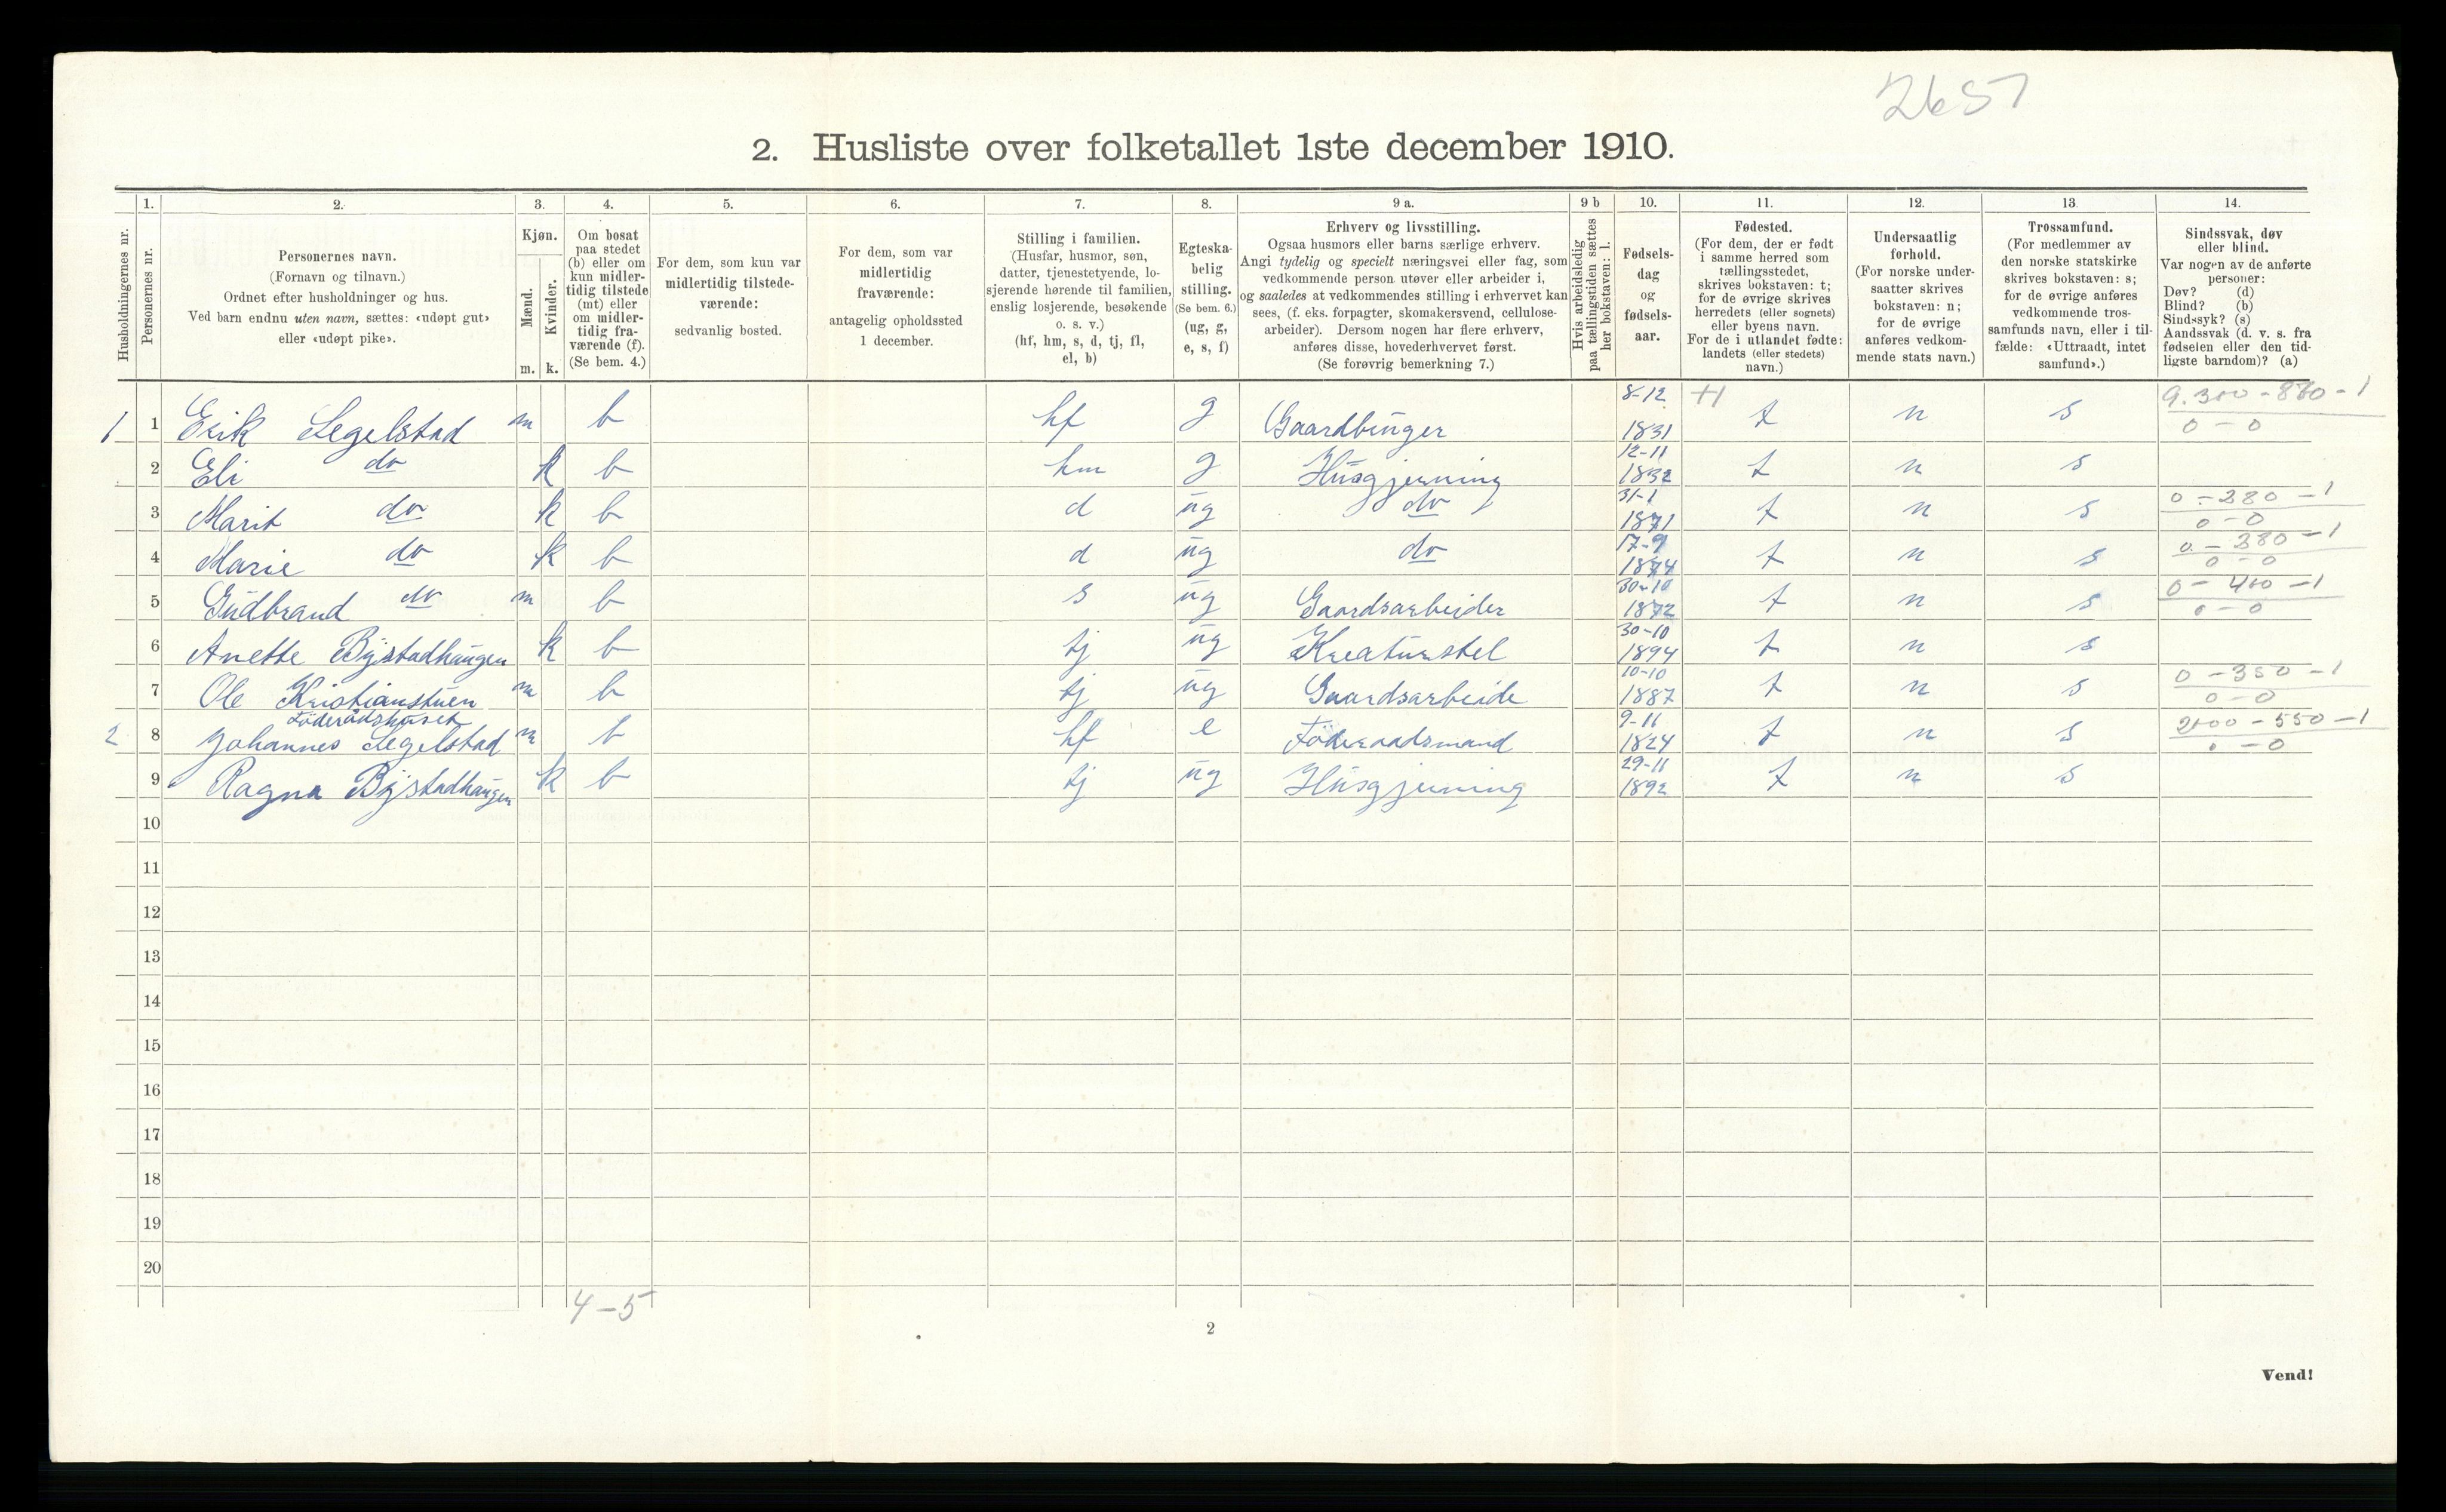 2657
2. Husliste over folketallet 1ste december 1910.
Husholdningernes nr.
1. Personernes nr.
2. Personernes navn. (Fornavn og tilnavn.) Ordnet efter husholdninger og hus. Ved barn endnu uten navn, sættes: «udøpt gut» eller «udøpt pike».
3. Kjøn. Mænd. m. Kvinder. k.
4. Om bosat paa stedet (b) eller om kun midlertidig tilstede (mt) eller om midlertidig fraværende (f). (Se bem. 4.)
5. For dem, som kun var midlertidig tilstedeværende: sedvanlig bosted.
6. For dem, som var midlertidig fraværende: antagelig opholdssted 1 december.
7. Stilling i familien. (Husfar, husmor, søn, datter, tjenestetyende, losjerende hørende til familien, enslig losjerende, besøkende o. s. v.) (hf, hm, s, d, tj, fl, el, b)
8. Egteskabelig stilling. (Se bem. 6.) (ug, g, e, s, f)
9 a. Erhverv og livsstilling. Ogsaa husmors eller barns særlige erhverv. Angi tydelig og specielt næringsvei eller fag, som vedkommende person utøver eller arbeider i, og saaledes at vedkommendes stilling i erhvervet kan sees, (f. eks. forpagter, skomakersvend, cellulosearbeider). Dersom nogen har flere erhverv, anføres disse, hovederhvervet først. (Se forøvrig bemerkning 7.)
9 b Hvis arbeidsledig paa tællingstiden sættes her bokstaven: l.
10. Fødselsdag og fødselsaar.
11. Fødested. (For dem, der er født i samme herred som tællingsstedet, skrives bokstaven: t; for de øvrige skrives herredets (eller sognets) eller byens navn. For de i utlandet fødte: landets (eller stedets) navn.)
12. Undersaatlig forhold. (For norske undersaatter skrives bokstaven: n; for de øvrige anføres vedkommende stats navn.)
13. Trossamfund. (For medlemmer av den norske statskirke skrives bokstaven: s; for de øvrige anføres vedkommende trossamfunds navn, eller i tilfælde: «Uttraadt, intet samfund».)
14. Sindssvak, døv eller blind. Var nogen av de anførte personer: Døv? (d) Blind? (b) Sindssyk? (s) Aandssvak (d. v. s. fra fødselen eller den tidligste barndom)? (a)
1 1 Erik Segelstad m b hf g Gaardbruger 8-12 1831 t n s 9.300 - 870 - 1 0 - 0
2 Eli do k b hm g Husgjerning 12-11 1832 t n s
3 Marit do k b d ug do 31-1 1871 t n s 0 - 280 - 1 0 - 0
4 Marie do k b d ug do 17-9 1874 t n s 0 - 280 - 1 0 - 0
5 Gudbrand do m b s ug Gaardsarbeider 30-10 1872 t n s 0 - 400 - 1 0 - 0
6 Anette Bystadhaugen k b tj ug Kreaturstel 30-10 1894 t n s
7 Ole Kristianstuen m b tj ug Gaardsarbeide 10-10 1887 t n s 0 - 350 - 1 0 - 0
Föderådshuset
2 8 Johannes Segelstad m b hf e Föderaadsmand 9-11 1824 t n s 2000 - 550 - 1 0 - 0
9 Ragna Bystadhaugen k b tj ug Husgjerning 29-11 1892 t n s
10
11
12
13
14
15
16
17
18
19
20
4 - 5
2
Vend!